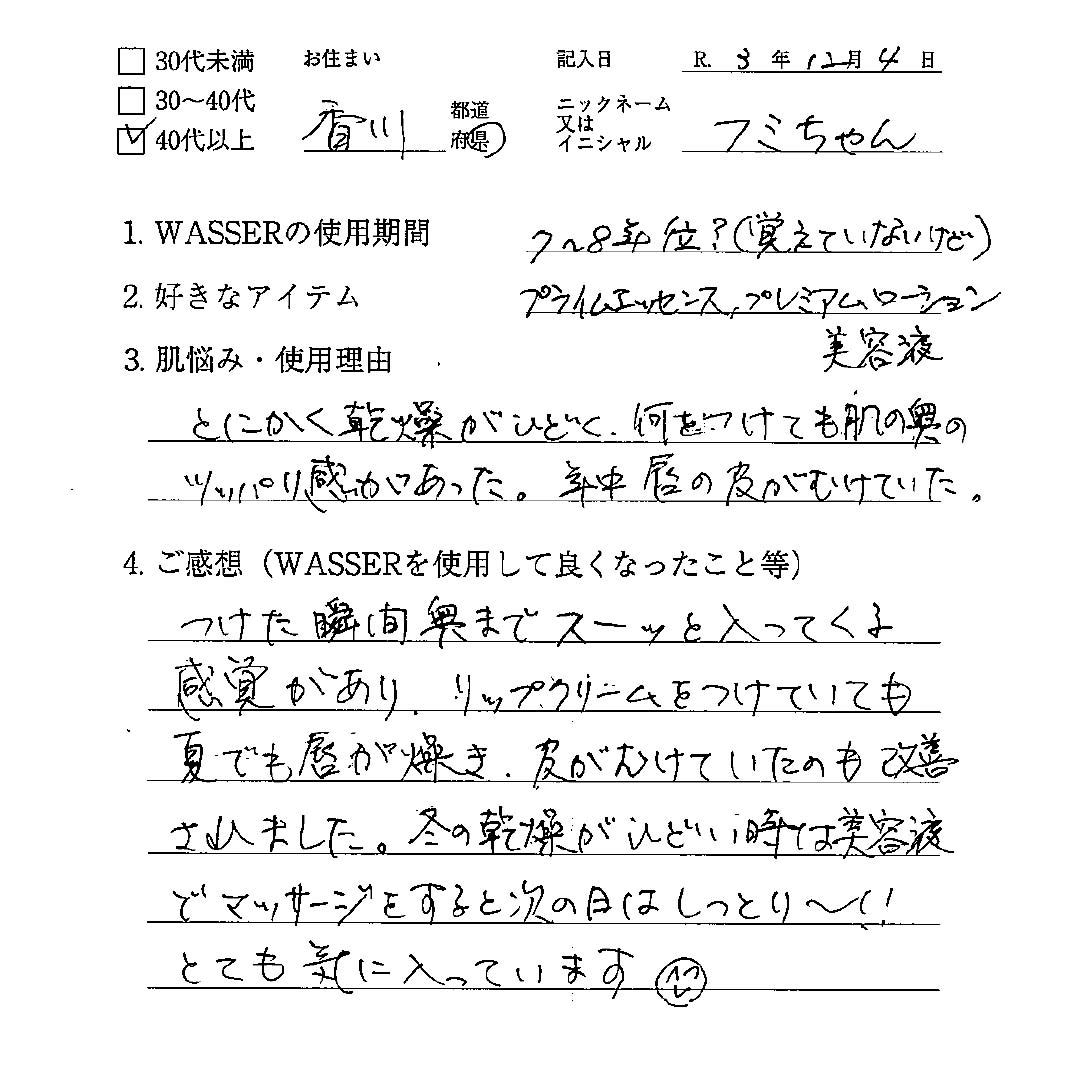 □ 30代未満 お住まい 記入日 R. 3 年 12月 4 日
□ 30～40代
☑ 40代以上 香川 都道府県 ニックネーム又はイニシャル フミちゃん
1. WASSERの使用期間 7～8年位?(覚えていないけど)
2. 好きなアイテム プライムエッセンス, プレミアムローション
美容液
3. 肌悩み・使用理由
とにかく乾燥がひどく、何をつけても肌の奥の
ツッパリ感があった。年中唇の皮がむけていた。
4. ご感想（WASSERを使用して良くなったこと等）
つけた瞬間奥までスーッと入ってくる
感覚があり、リップクリームをつけていても
夏でも唇が燥き、皮がむけていたのも改善
されました。冬の乾燥がひどい時は美容液
でマッサージをすると次の日はしっとり～!!
とても気に入っています